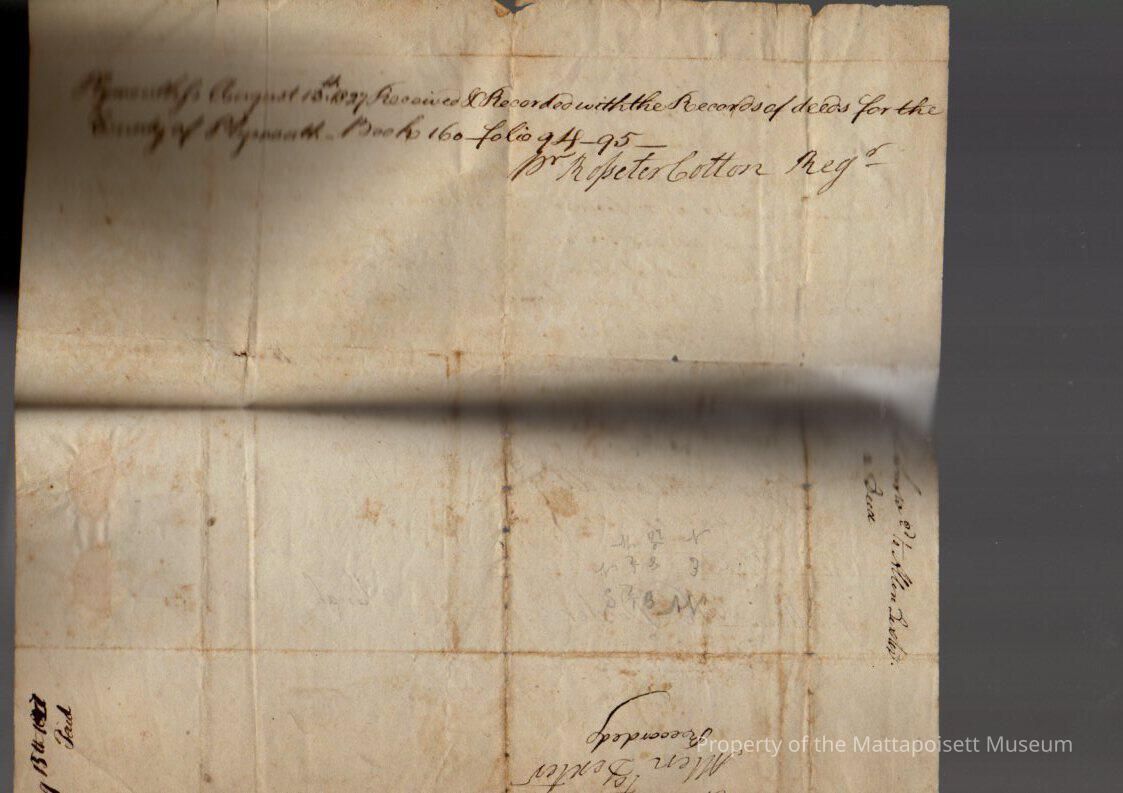 Plymouth ss August 13th 1827 Received & Recorded with the Records of deeds for the
County of Plymouth Book 160 folio 94-95
pr Rosseter Cotton Regr
Allen Dexter
Recorded
Allen Dexter
Paid
Property of the Mattapoisett Museum